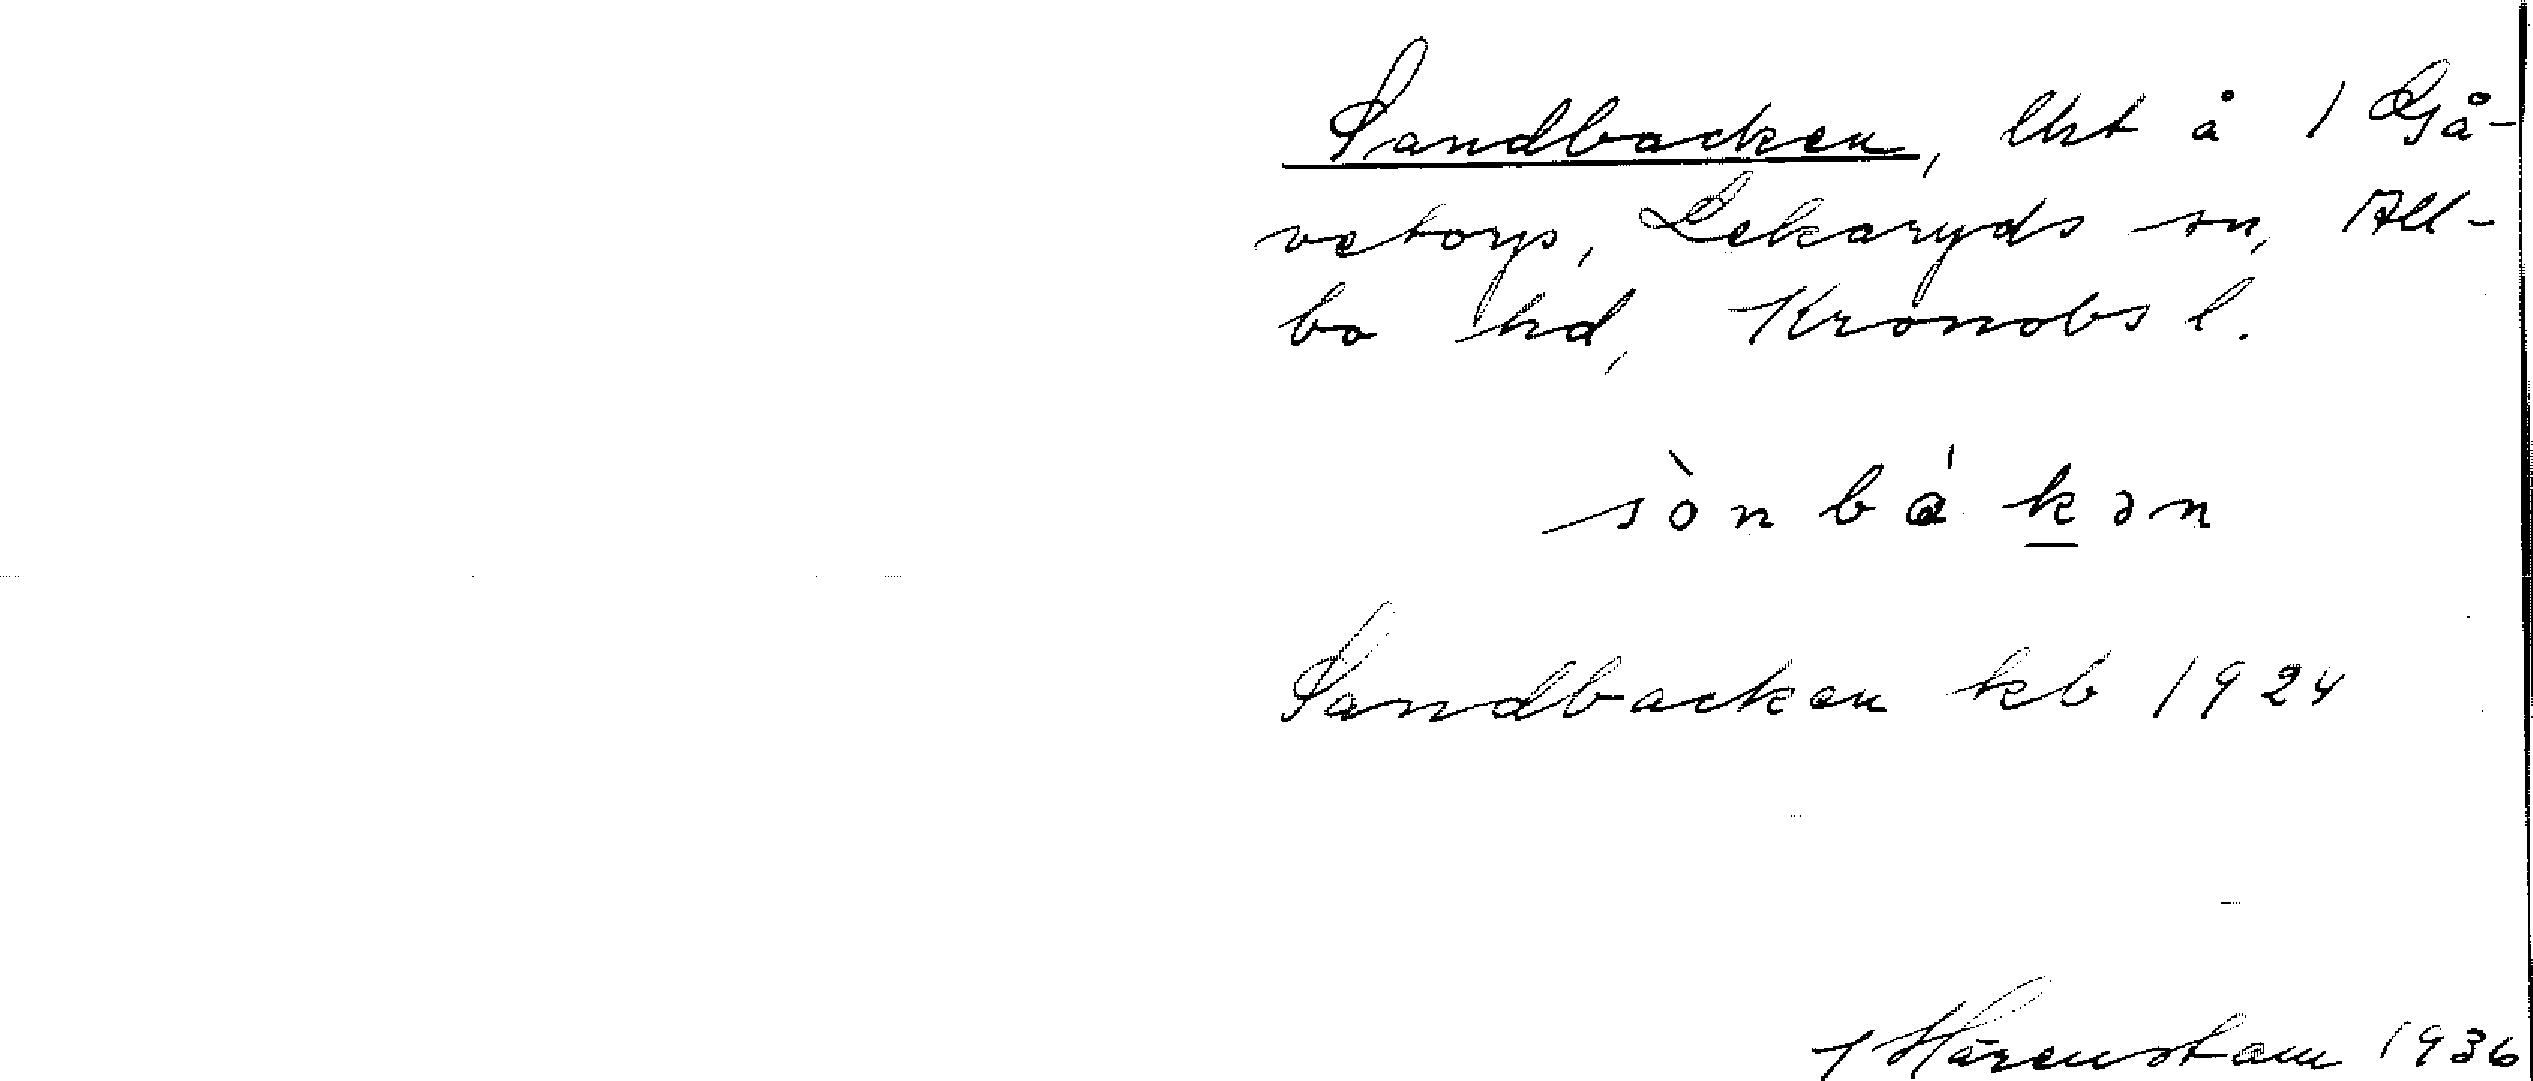 Sandbacken, lht å 1 Gå-
vetorp, Lekaryds sn, All-
bo hd, Kronobs l.
sònbákən
Sandbacken kb 1924
Hårenstam 1936